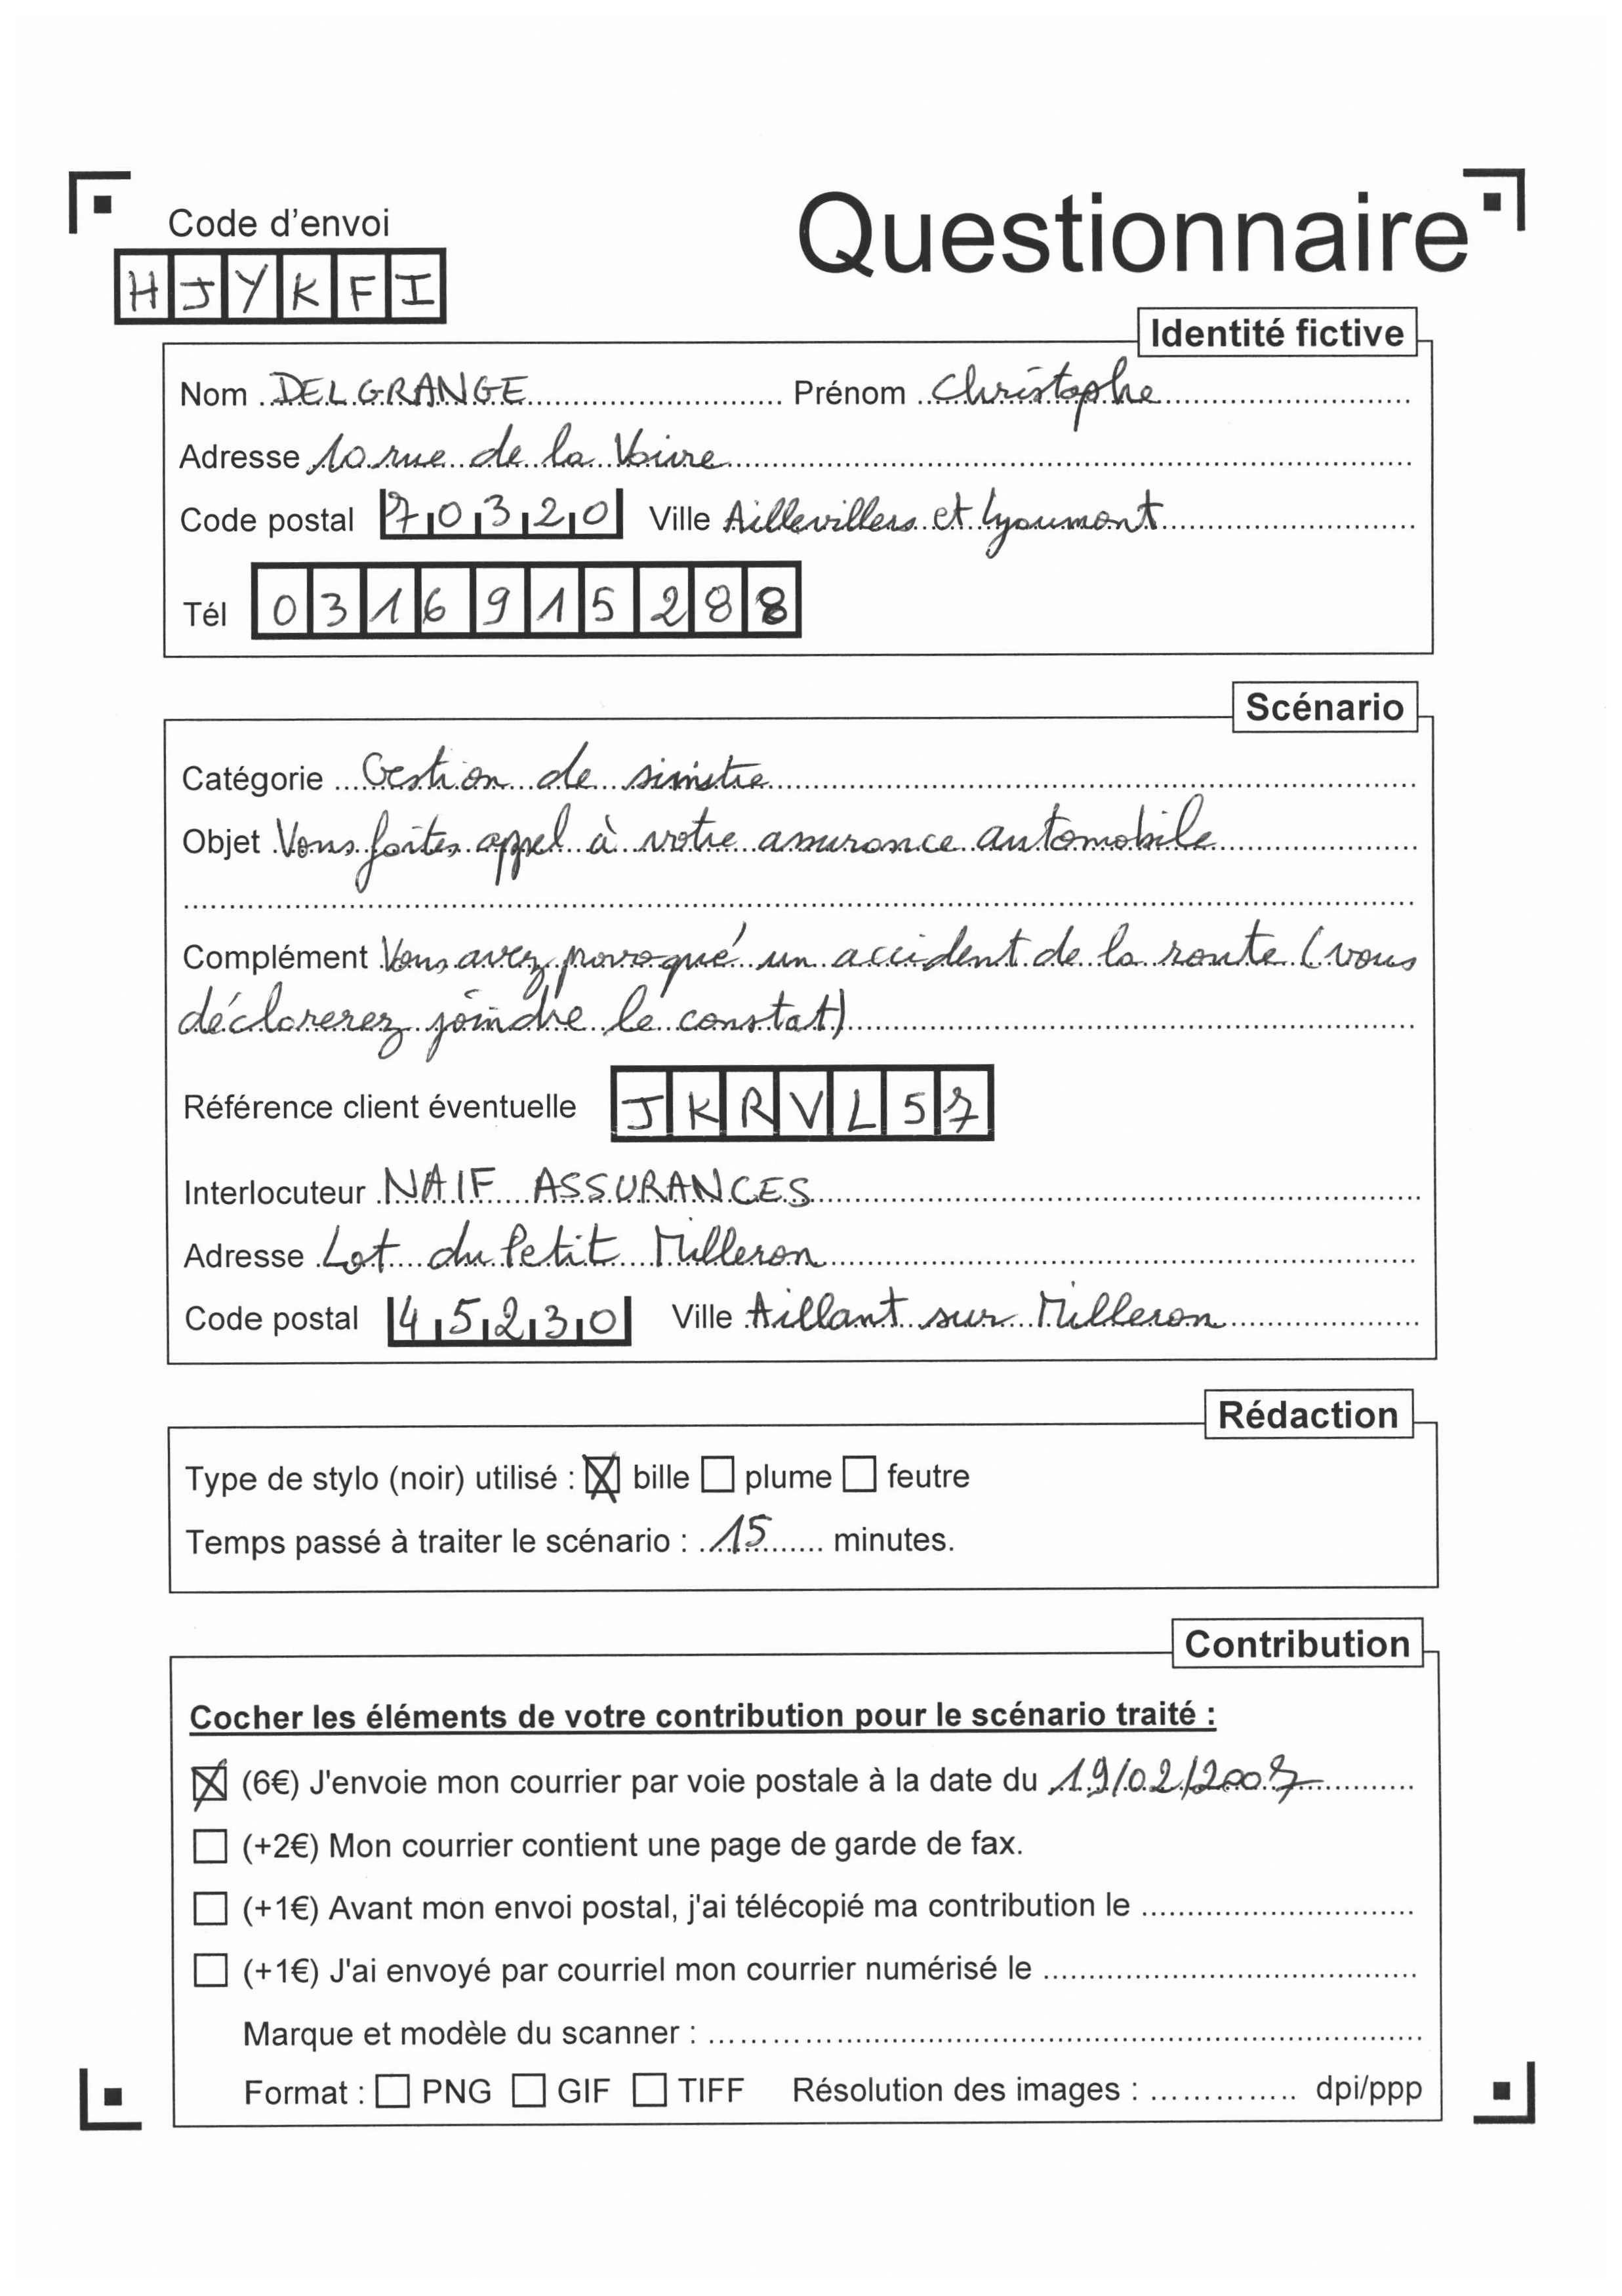 Code d'envoi
Questionnaire
HJYKFI
Identité fictive
Nom DELGRANGE Prénom Christophe
Adresse 10 rue de la Voivre
Code postal 70320 Ville Aillevillers et Lyaumont
Tél 0316915288
Scénario
Catégorie Gestion de sinistre
Objet Vous faites appel à votre assurance automobile
Complément Vous avez provoqué un accident de la route (vous
déclarerez joindre le constat)
Référence client éventuelle JKRVL57
Interlocuteur NAIF ASSURANCES
Adresse Lot du Petit Milleron
Code postal 45230 Ville Aillant sur Milleron
Rédaction
Type de stylo (noir) utilisé : ☒ bille ☐ plume ☐ feutre
Temps passé à traiter le scénario : 15 minutes.
Contribution
Cocher les éléments de votre contribution pour le scénario traité :
☒ (6€) J'envoie mon courrier par voie postale à la date du 19/02/2007
☐ (+2€) Mon courrier contient une page de garde de fax.
☐ (+1€) Avant mon envoi postal, j'ai télécopié ma contribution le
☐ (+1€) J'ai envoyé par courriel mon courrier numérisé le
Marque et modèle du scanner :
Format : ☐ PNG ☐ GIF ☐ TIFF Résolution des images : dpi/ppp